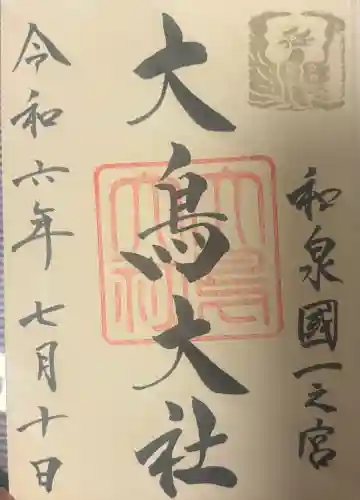 和泉國一之宮
大鳥大社
大鳥大社
令和六年七月十日